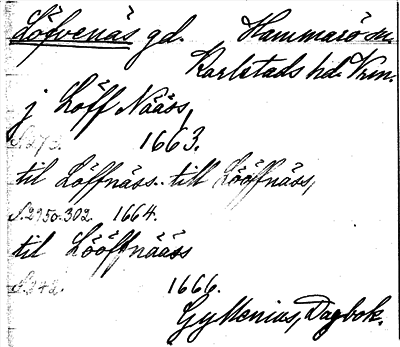 Löfvenäs gd. Hammarö sn.
Karlstads hd. Vrm.
j Löff Nääss,
S. 273. 1663.
til Löffnäss. till Lööffnäss,
S. 295 o. 302. 1664.
til Lööffnääss
S. 342. 1666.
Gyllenius, Dagbok.